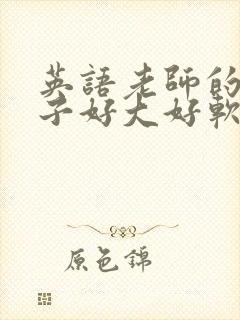 英語老師的
子好大好軟
原色錦